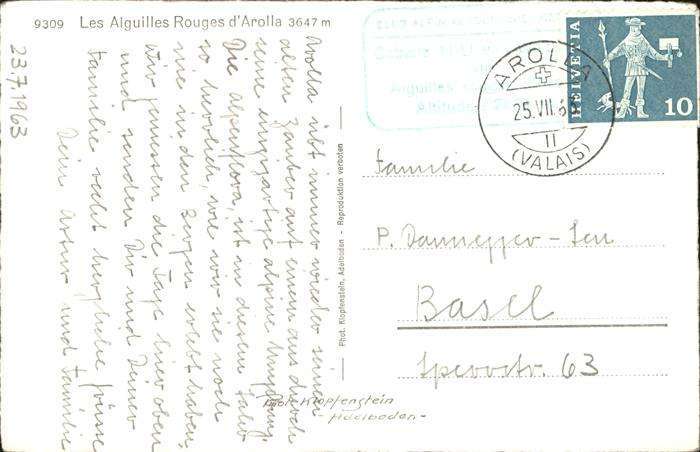 9309 Les Aiguilles Rouges d'Arolla 3647 m
23.7.1963
Arolla übt immer wieder seinen
alten Zauber auf einen aus durch
seine einzigartige alpine Umgebung.
Die Alpenflora ist in diesem Jahr
so herrlich, wie wir sie noch
nie in den Bergen erlebt haben.
Wir geniessen die Tage hier oben
und senden Dir und Deiner
Familie recht herzliche Grüsse
Dein Artur und Familie
Phot. Klopfenstein, Adelboden - Reproduktion verboten
Phot. Klopfenstein
- Adelboden -
Aiguilles
Altitude
AROLLA
25.VII.63
II
(VALAIS)
HELVETIA
10
Familie
P. Dannegger - Sen
Basel
Sperrstr. 63